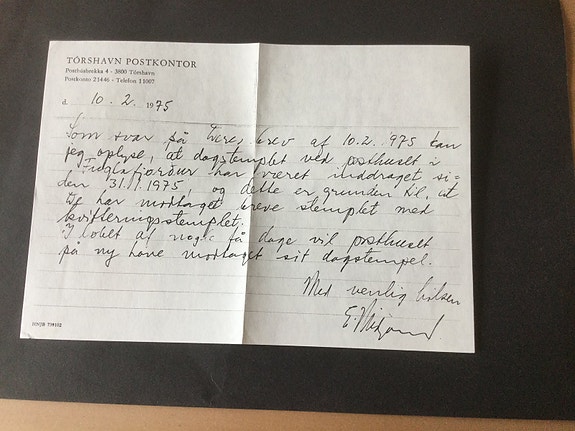 TÓRSHAVN POSTKONTOR
Posthúsbrekka 4 - 3800 Tórshavn
Postkonto 21446 - Telefon 11007
d. 10. 2. 1975
Som svar på Deres brev af 10.2. 975 kan
jeg oplyse, at dagstemplet ved posthuset i
Fuglafjørður har været inddraget si-
den 31.1.1975, og dette er grunden til, at
De har modtaget breve stemplet med
kvitteringsstemplet.
I løbet af nogle få dage vil posthuset
på ny have modtaget sit dagstempel.
Med venlig hilsen
E.